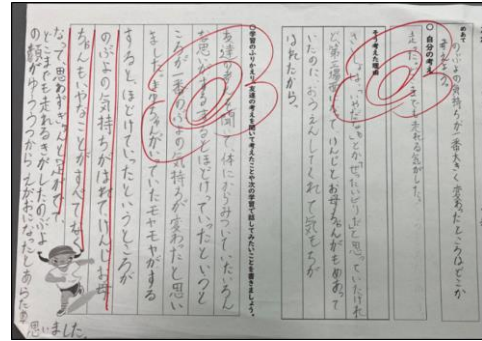 めあて
のぶよの気持ちが一番大きく変わったところはどこか
考えよう。
○ 自分の考え
までも走れる気がした。
そう考えた理由
さいしょは、いやだな
ど第三場面になって、けんじとお母ちゃんがもめあって
いたのに、おうえんしてくれて気もちが
はれたから。
○学習のふりかえり 友達の考えを聞いて考えたことや次の学習で話してみたいことを書きましょう。
友達の考えを聞いて、体にからみついていたいろん
な思いが、するするとほどけていったというと
ころが一番のぶよの気持ちが変わったと思い
ました。お母ちゃんが っていたモヤモヤがする
するとほどけていったというところが
のぶよの気持ちがはれて、けんじ、お母
ちゃんもいやなことがなんてなく
なって、思わずぎゅっと足が
どこまでも走れるきがしたのぶよ
の顔がゆううつからえがおになったとあらため
思いました。